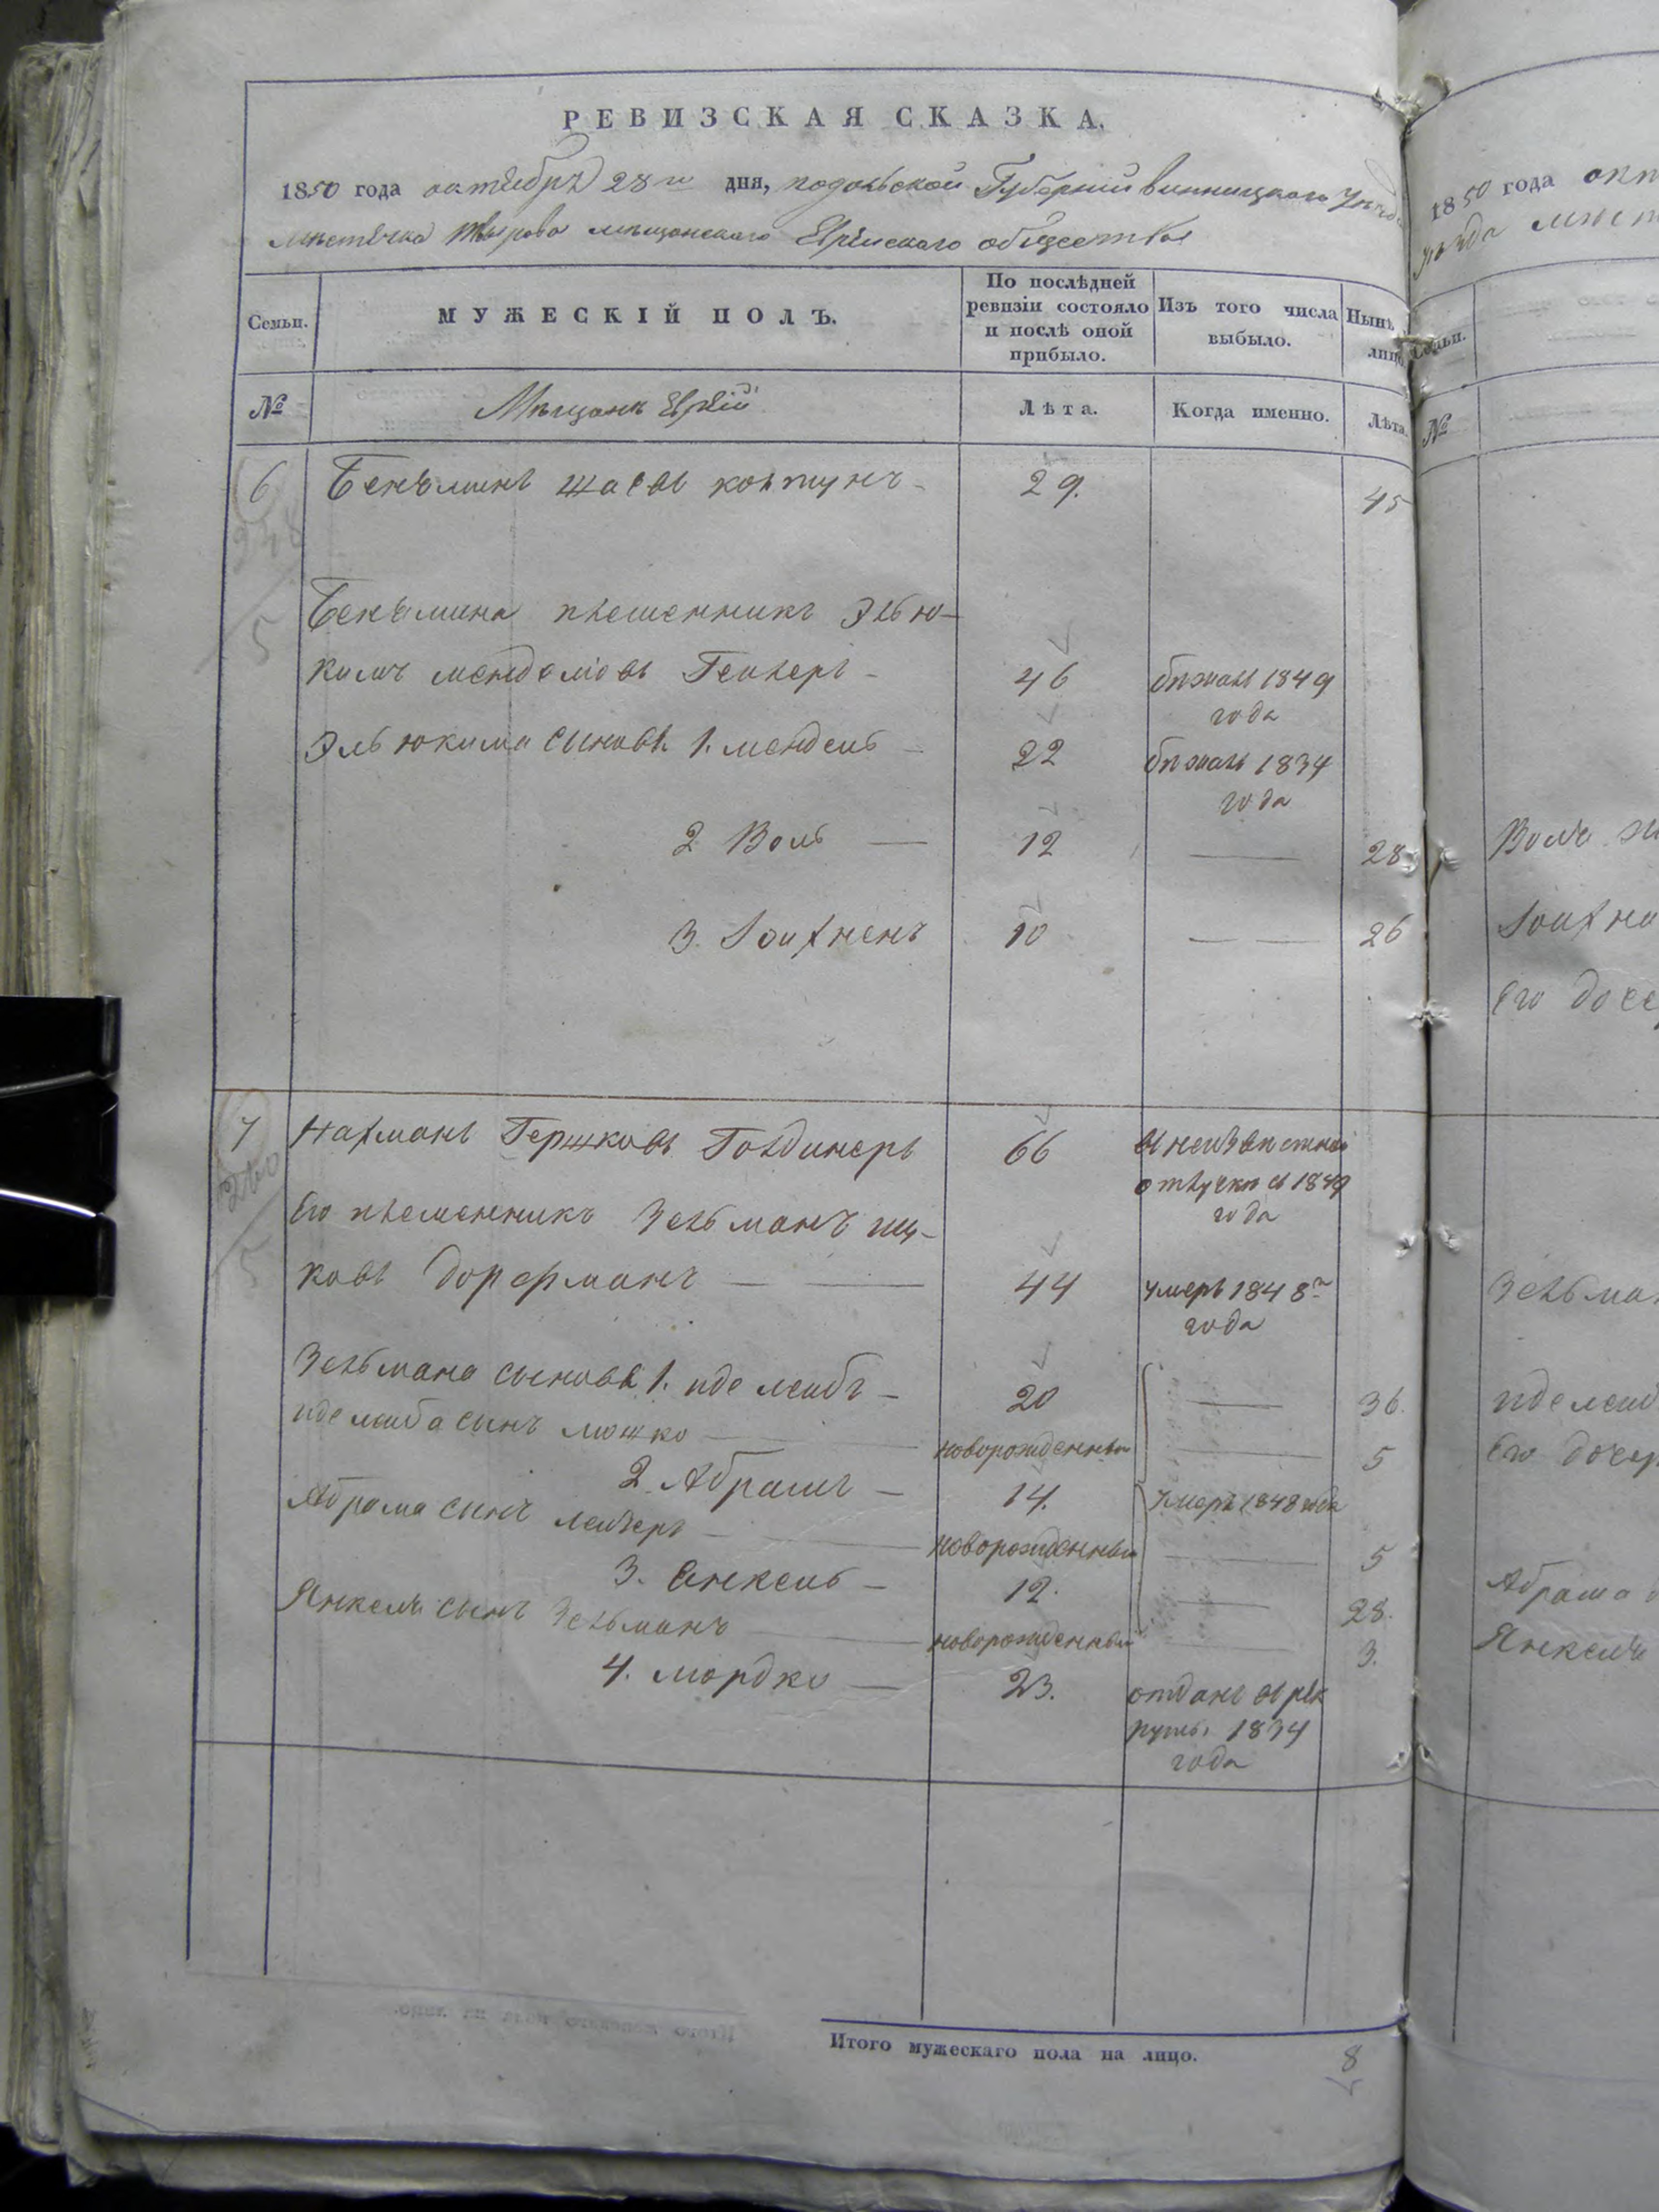 РЕВИЗСКАЯ СКАЗКА.
1850 года октября 28го дня, подольской Губерніи винницкого Уѣзда
мѣстечка Тыврова мѣщанскаго Еврейскаго общества
Семьи.
МУЖЕСКІЙ ПОЛЪ.
По послѣдней ревизіи состояло и послѣ оной прибыло.
Изъ того числа выбыло.
Нынѣ
лиц
№
Мѣщанъ Еврей
Лѣта.
Когда именно.
Лѣта.
6
Беньминъ колтунъ 29. 45
5
Беньмина племенникъ Элью-
кимъ менделіовъ Геллеръ 46 бѣжалъ 1849
года
Эльюкима сыновья 1. мендель 22 бѣжалъ 1834
года
2 Воль 12 28
3. Іойхненъ 10 26
7 Нахманъ Гершковъ Голдинеръ 66 въ неизвѣстной
отлучкѣ съ 1849
года
260
5
Его племенникъ Зельманъ иц-
ковъ Дорфманъ 44 умеръ 1848го
года
Зельмана сыновья 1. иде лейбъ 20 36.
иде лейба сынъ мошко новорожденный 5
2. Абрамъ 14. умеръ 1848 года
Абрама сынъ лейзеръ новорожденный 5
3. Янкель 12. 28.
Янкеля сынъ Зельманъ новорожденный 3.
4. мордко 23. отданъ въ рек
руты 1834
года
Итого мужескаго пола на лицо. 8
1850 года окт
уѣзда мѣст
Семьи.
№
Воля
Іойхне
Его доче
Зельма
иде лейб
Его дочер
Абрама
Янкеля